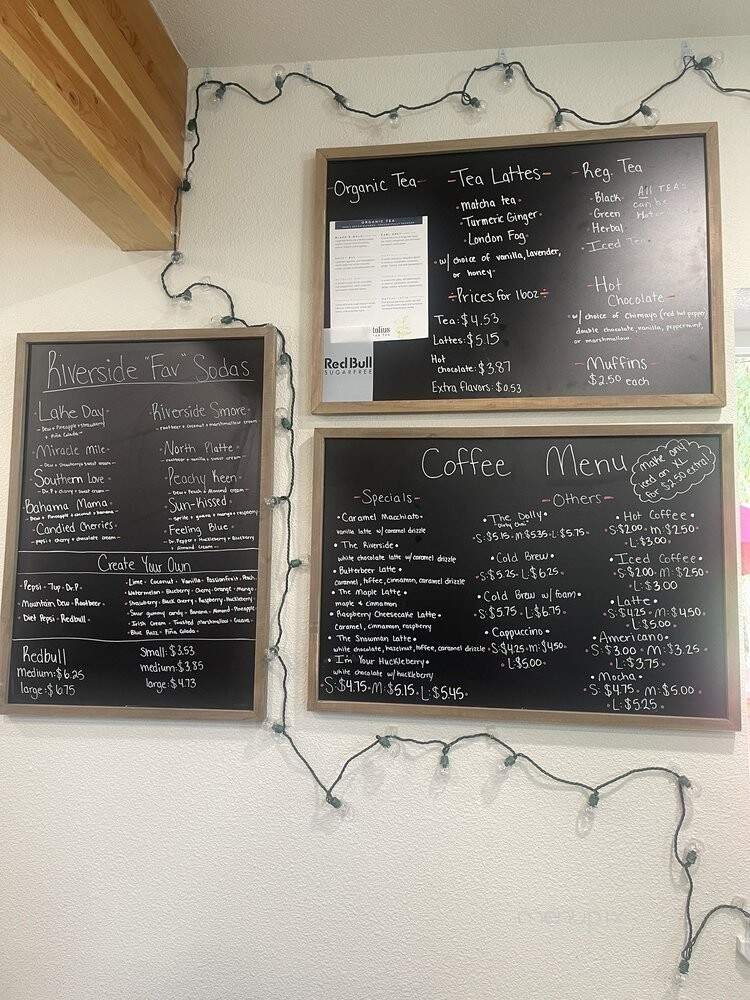 Organic Tea
ORGANIC TEA
RedBull
SUGARFREE
Tea Lattes
• matcha tea •
• Turmeric Ginger •
• London Fog •
• w/ choice of vanilla, lavender,
or honey •
Prices for 16oz
Tea: $4.53
Lattes: $5.15
Hot
chocolate: $3.87
Extra flavors: $0.53
Reg. Tea
• Black
• Green
• Herbal
• Iced Tea
All TEAs
can be
Hot
Hot
Chocolate
• w/ choice of chimayo (red hot pepper)
double chocolate, vanilla, peppermint,
or marshmallow.
Muffins
$2.50 each
Riverside "Fav" Sodas
Lake Day
- Dew + Pineapple + strawberry
+ Piña Colada -
Miracle mile
- Dew + Strawberry + sweet cream -
Southern Love
- Dr. P + cherry + sweet cream -
Bahama Mama
- Dew + Pineapple + coconut + banana
Candied Cherries
- pepsi + cherry + chocolate cream -
Riverside Smore
- rootbeer + coconut + marshmallow cream
North Platte
- rootbeer + vanilla + sweet cream -
Peachy Keen
- Dew + Peach + Almond cream -
Sun-Kissed
- Sprite + guava + mango + raspberry
Feeling Blue
- Dr. Pepper + Huckleberry + Blueberry
+ Almond Cream -
Create Your Own
• Pepsi • 7up • Dr. P •
• Mountain Dew • Rootbeer •
• Diet Pepsi • Redbull •
• Lime • Coconut • Vanilla • Passionfruit • Peach
• Watermelon • Blueberry • Cherry • orange • mango •
• Strawberry • Black Cherry • Raspberry • Huckleberry •
• Sour gummy candy • Banana • Almond • Pineapple
• Irish Cream • Toasted marshmallow • Guava •
• Blue Razz • Piña Colada •
Redbull
medium: $6.25
large: $6.75
Small: $3.53
medium: $3.85
large: $4.73
Coffee Menu
make any
iced an XL
for $2.50 extra!
Specials
• Caramel Macchiato •
vanilla latte w/ caramel drizzle
• The Riverside •
white chocolate latte w/ caramel drizzle
• Butterbeer Latte •
caramel, toffee, cinnamon, caramel drizzle
• The Maple Latte •
maple & cinnamon
• Raspberry Cheesecake Latte •
Caramel, cinnamon, raspberry
• The Snowman Latte •
white chocolate, hazelnut, toffee, caramel drizzle
• I'm Your Huckleberry •
white chocolate w/ huckleberry
S: $4.75 • M: $5.15 • L: $5.45 •
Others
• The Dolly •
Dirty Chai
• S: $5.15 • M: $5.35 • L: $5.75 •
• Cold Brew •
• S: $5.25 • L: $6.25 •
• Cold Brew w/ foam •
• S: $5.75 • L: $6.75 •
• Cappuccino •
• S: $4.25 • m: $4.50 •
• L: $5.00 •
• Hot Coffee •
• S: $2.00 • m: $2.50 •
• L: $3.00 •
• Iced Coffee •
• S: $2.00 • M: $2.50 •
• L: $3.00
• Latte •
• S: $4.25 • M: $4.50 •
• L: $5.00 •
• Americano •
• S: $3.00 • M: $3.25 •
• L: $3.75 •
• Mocha •
• S: $4.75 • M: $5.00 •
• L: $5.25 •